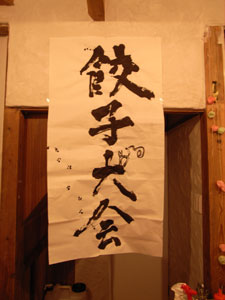 餃子大会